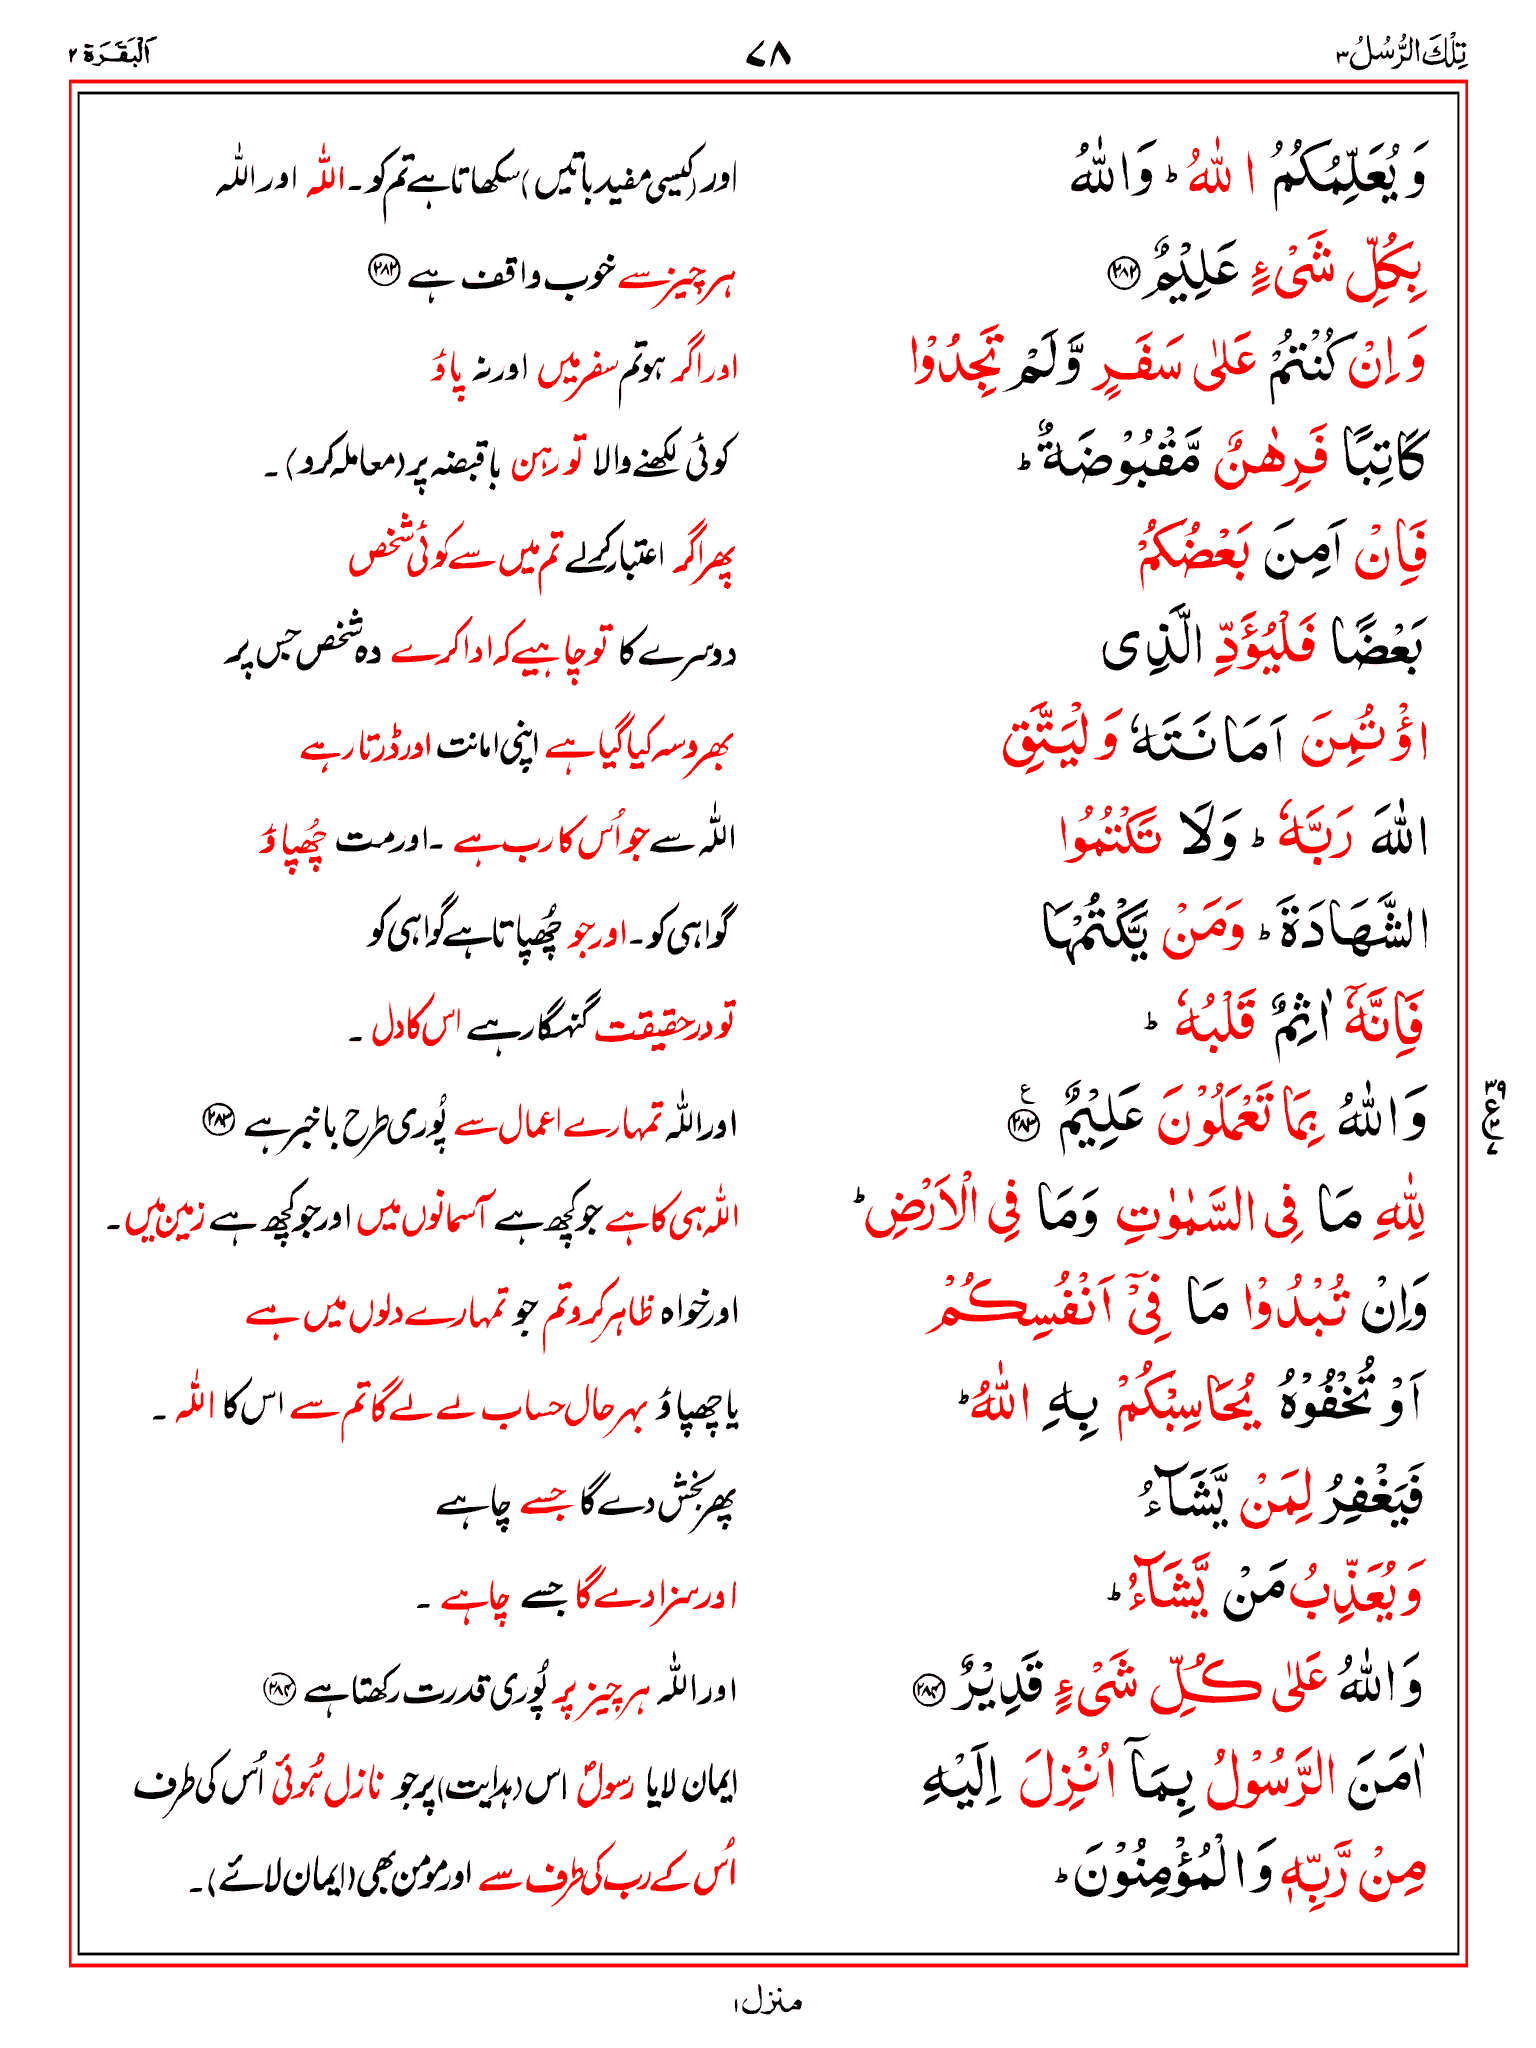 تِلْكَ الرُّسُلُ ٣ ٧٨ اَلْبَقَرَة ٢
وَ يُعَلِّمُكُمُ اللّٰهُ ؕ وَ اللّٰهُ اور (کیسی مفید باتیں) سکھاتا ہے تم کو۔ اللہ اور اللہ
بِكُلِّ شَیْءٍ عَلِیْمٌ ﴿۲۸۲﴾ ہر چیز سے خوب واقف ہے ﴿۲۸۲﴾
وَ اِنْ كُنْتُمْ عَلٰی سَفَرٍ وَّ لَمْ تَجِدُوْا اور اگر ہو تم سفر میں اور نہ پاؤ
كَاتِبًا فَرِهٰنٌ مَّقْبُوْضَةٌ ؕ کوئی لکھنے والا تو رہن با قبضہ پر (معاملہ کرو)۔
فَاِنْ اَمِنَ بَعْضُكُمْ پھر اگر اعتبار کرلے تم میں سے کوئی شخص
بَعْضًا فَلْیُؤَدِّ الَّذِی دوسرے کا تو چاہیے کہ ادا کرے وہ شخص جس پر
اؤْتُمِنَ اَمَانَتَهٗ وَ لْیَتَّقِ بھروسہ کیا گیا ہے اپنی امانت اور ڈرتا رہے
اللّٰهَ رَبَّهٗ ؕ وَ لَا تَكْتُمُوا اللہ سے جو اُس کا رب ہے ۔اور مت چُھپاؤ
الشَّهَادَةَ ؕ وَمَنْ یَّكْتُمْهَا گواہی کو۔ اور جو چُھپاتا ہے گواہی کو
فَاِنَّهٗۤ اٰثِمٌ قَلْبُهٗ ؕ تو درحقیقت گنہگار ہے اس کا دل ۔
وَ اللّٰهُ بِمَا تَعْمَلُوْنَ عَلِیْمٌ ﴿۲۸۳﴾ ع اور اللہ تمہارے اعمال سے پُوری طرح باخبر ہے ﴿۲۸۳﴾
۳۹ ع ۷
لِلّٰهِ مَا فِی السَّمٰوٰتِ وَمَا فِی الْاَرْضِ ؕ اللہ ہی کا ہے جو کچھ ہے آسمانوں میں اور جو کچھ ہے زمین میں۔
وَاِنْ تُبْدُوْا مَا فِیْۤ اَنْفُسِكُمْ اور خواہ ظاہر کرو تم جو تمہارے دلوں میں ہے
اَوْ تُخْفُوْهُ یُحَاسِبْكُمْ بِهِ اللّٰهُ ؕ یا چھپاؤ بہرحال حساب لے لے گا تم سے اس کا اللہ ۔
فَیَغْفِرُ لِمَنْ یَّشَآءُ پھر بخش دے گا جسے چاہے
وَ یُعَذِّبُ مَنْ یَّشَآءُ ؕ اور سزا دے گا جسے چاہے ۔
وَ اللّٰهُ عَلٰی كُلِّ شَیْءٍ قَدِیْرٌ ﴿۲۸۴﴾ اور اللہ ہر چیز پر پُوری قدرت رکھتا ہے ﴿۲۸۴﴾
اٰمَنَ الرَّسُوْلُ بِمَاۤ اُنْزِلَ اِلَیْهِ ایمان لایا رسولؐ اس (ہدایت) پر جو نازل ہُوئی اُس کی طرف
مِنْ رَّبِّهٖ وَ الْمُؤْمِنُوْنَ ؕ اُس کے رب کی طرف سے اور مومن بھی (ایمان لائے)۔
منزل ۱